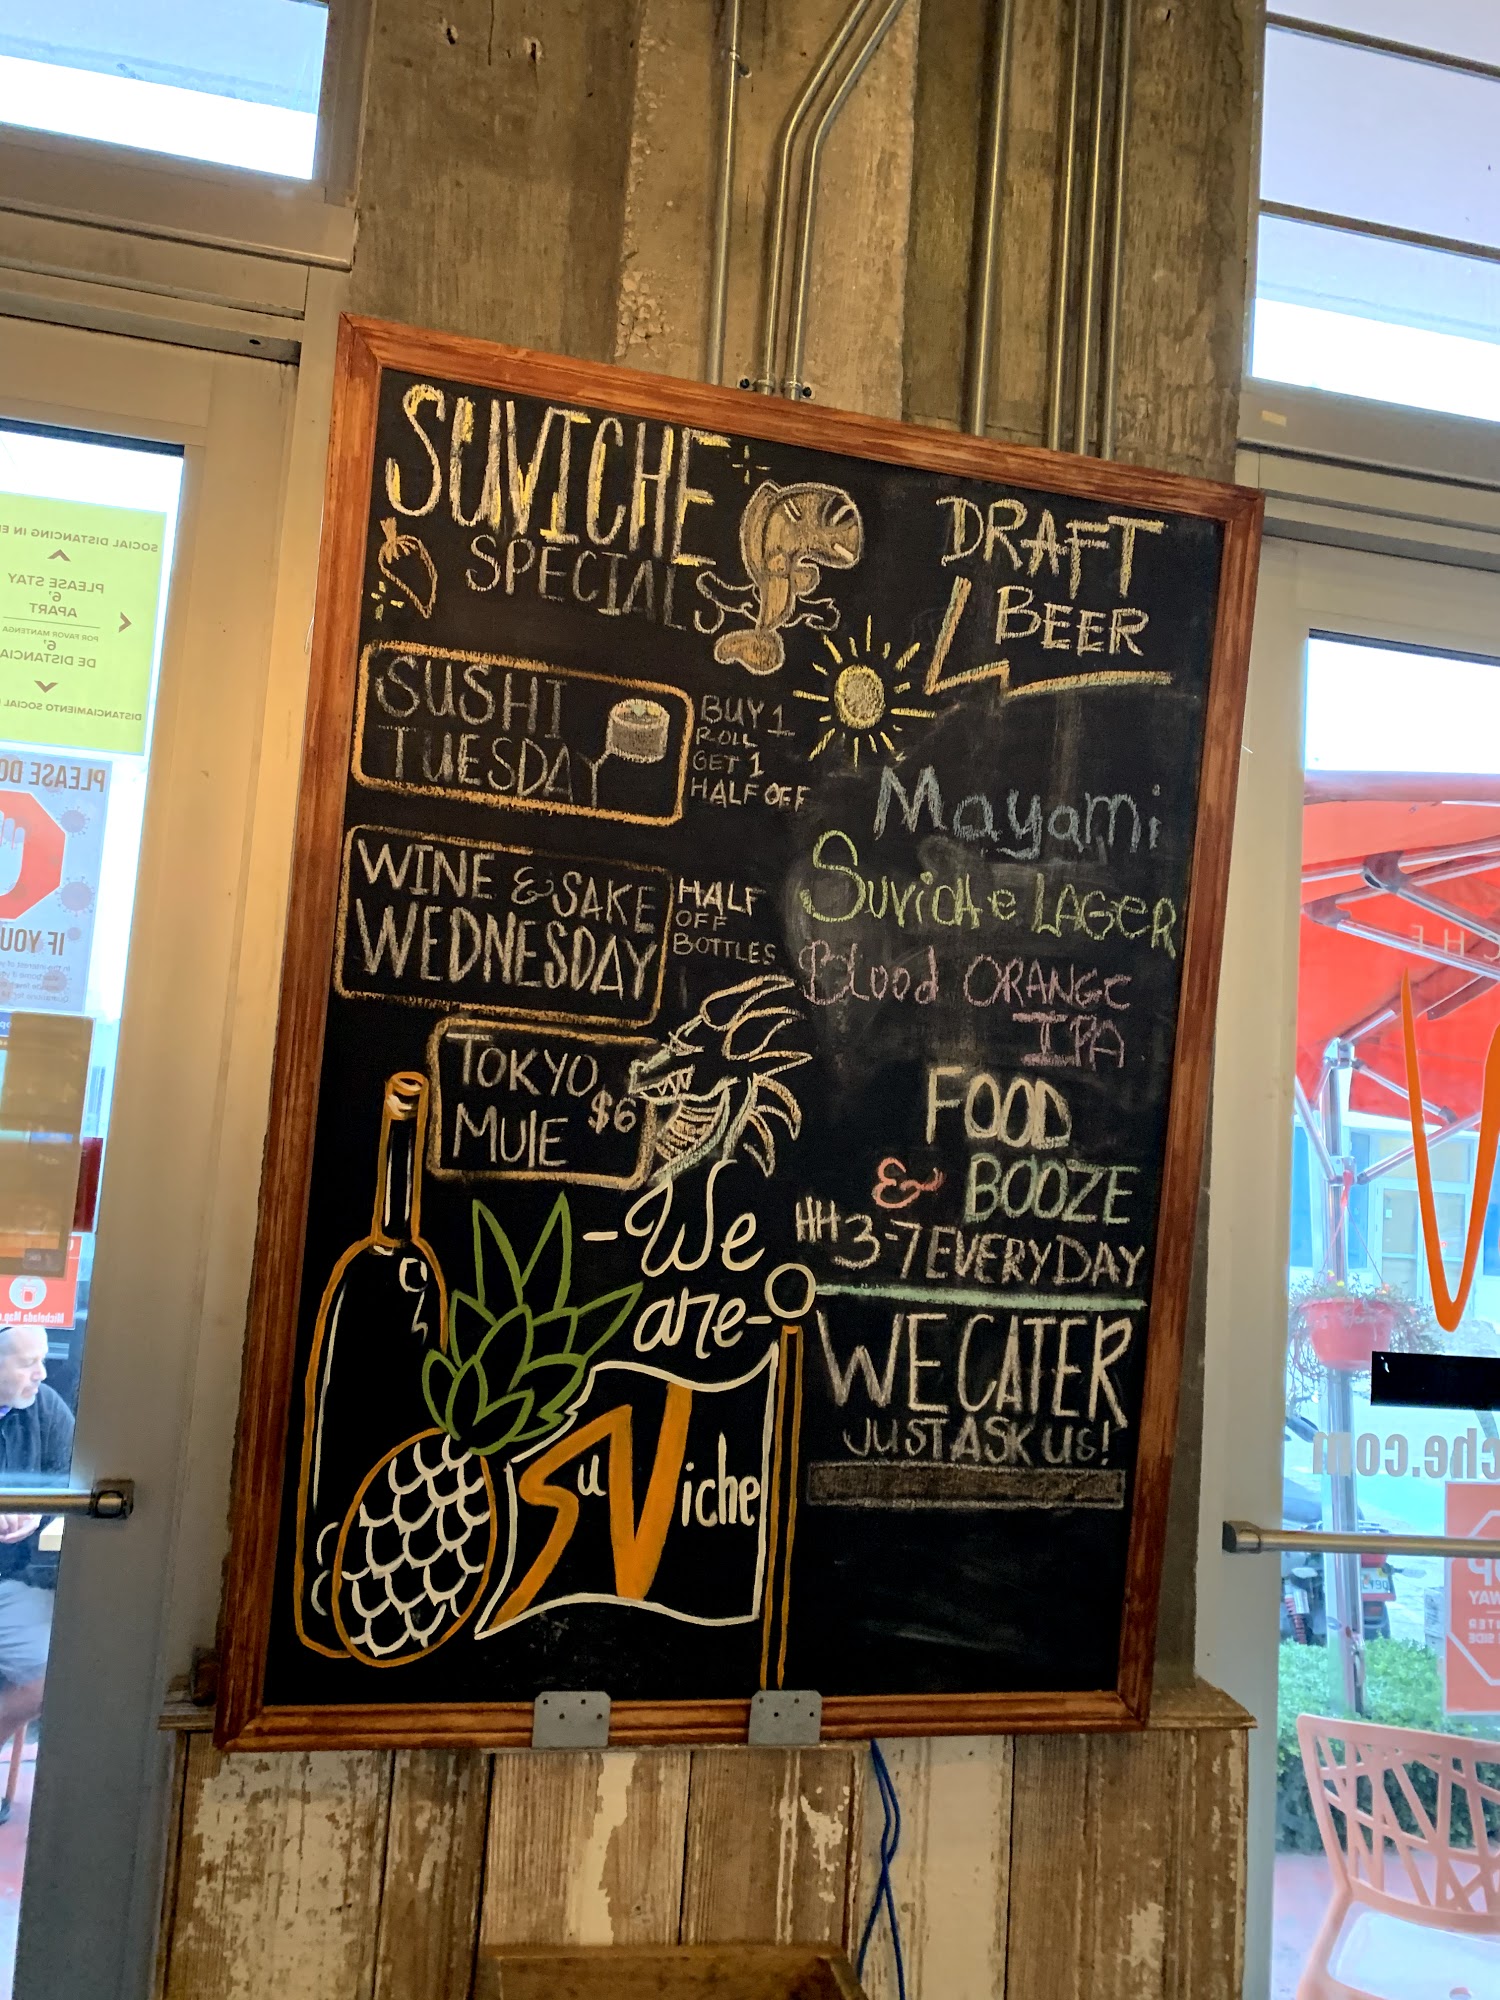 SUVICHE
SPECIALS
SUSHI
TUESDAY
BUY 1
ROLL
GET 1
HALF OFF
WINE & SAKE
WEDNESDAY
HALF
OFF
BOTTLES
TOKYO
MULE $6
- We
are -
SuViche
DRAFT
BEER
Mayami
Suviche LAGER
Blood ORANGE
IPA
FOOD
& BOOZE
HH 3-7 EVERYDAY
WE CATER
JUST ASK US!
SOCIAL DISTANCING IN E
PLEASE STAY
6'
APART
POR FAVOR MANTENGA
6'
DE DISTANCIA
DISTANCIAMIENTO SOCIAL
PLEASE DO
IF YOU
che.com